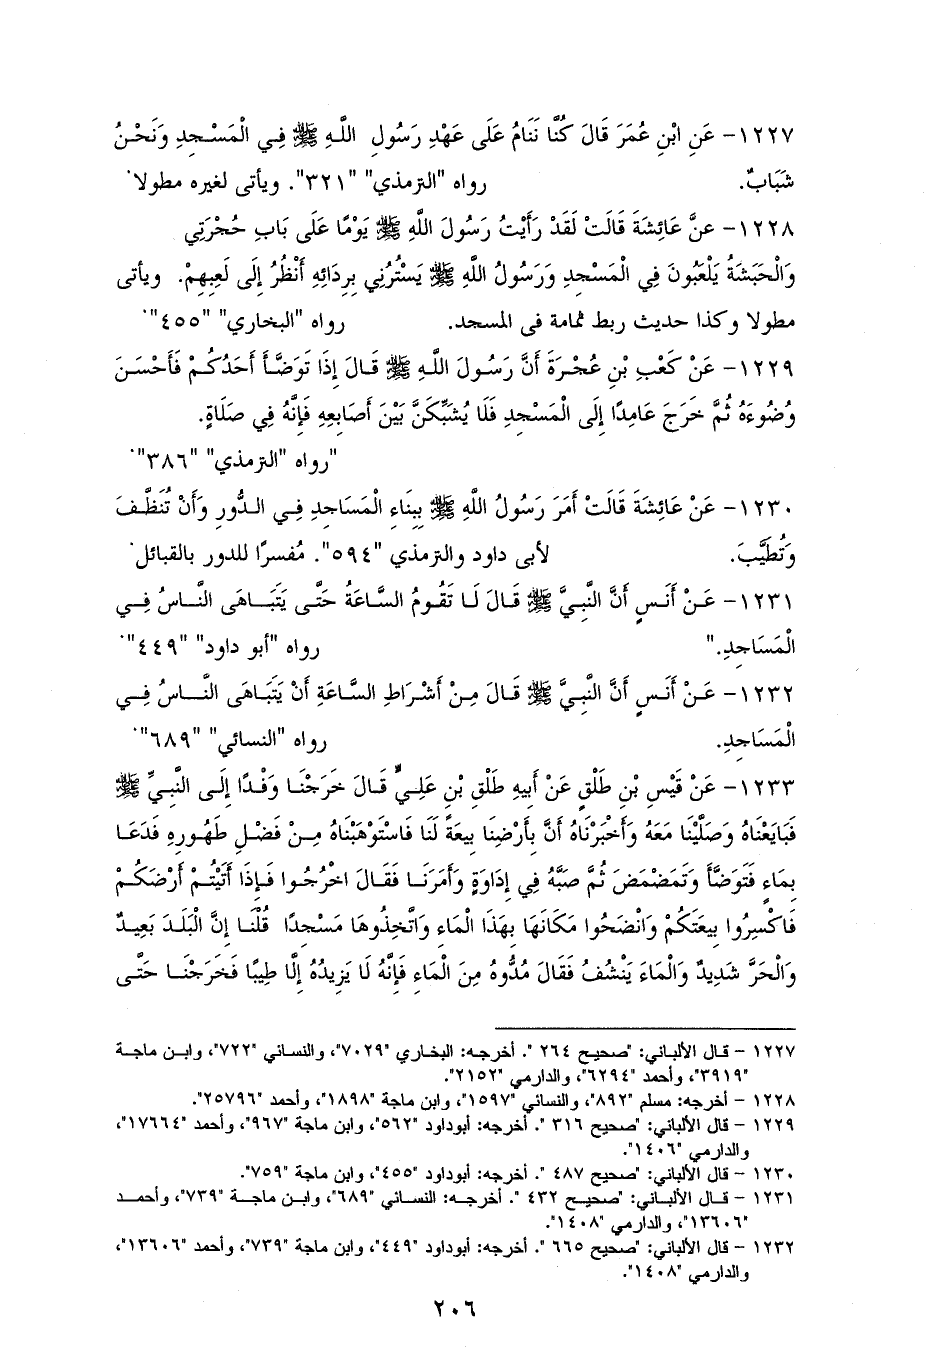 ١٢٢٧- عَنِ ابْنِ عُمَرَ قَالَ كُنَّا نَنَامُ عَلَى عَهْدِ رَسُولِ اللَّهِ ﷺ فِي الْمَسْجِدِ وَنَحْنُ
شَبَابٌ. رواه "الترمذي" "٣٢١". ويأتى لغيره مطولا.
١٢٢٨- عنَّ عَائِشَةَ قَالَتْ لَقَدْ رَأَيْتُ رَسُولَ اللَّهِ ﷺ يَوْمًا عَلَى بَابِ حُجْرَتِي
وَالْحَبَشَةُ يَلْعَبُونَ فِي الْمَسْجِدِ وَرَسُولُ اللَّهِ ﷺ يَسْتُرُنِي بِرِدَائِهِ أَنْظُرُ إِلَى لَعِبِهِمْ. ويأتى
مطولا وكذا حديث ربط ثمامة فى المسجد. رواه "البخاري" "٤٥٥".
١٢٢٩- عَنْ كَعْبِ بْنِ عُجْرَةَ أَنَّ رَسُولَ اللَّهِ ﷺ قَالَ إِذَا تَوَضَّأَ أَحَدُكُمْ فَأَحْسَنَ
وُضُوءَهُ ثُمَّ خَرَجَ عَامِدًا إِلَى الْمَسْجِدِ فَلَا يُشَبِّكَنَّ بَيْنَ أَصَابِعِهِ فَإِنَّهُ فِي صَلَاةٍ.
"رواه "الترمذي" "٣٨٦".
١٢٣٠- عَنْ عَائِشَةَ قَالَتْ أَمَرَ رَسُولُ اللَّهِ ﷺ بِبِنَاءِ الْمَسَاجِدِ فِي الدُّورِ وَأَنْ تُنَظَّفَ
وَتُطَيَّبَ. لأبى داود والترمذي "٥٩٤". مُفسرًا للدور بالقبائل.
١٢٣١- عَنْ أَنَسٍ أَنَّ النَّبِيَّ ﷺ قَالَ لَا تَقُومُ السَّاعَةُ حَتَّى يَتَبَاهَى النَّاسُ فِي
الْمَسَاجِدِ." رواه "أبو داود" "٤٤٩".
١٢٣٢- عَنْ أَنَسٍ أَنَّ النَّبِيَّ ﷺ قَالَ مِنْ أَشْرَاطِ السَّاعَةِ أَنْ يَتَبَاهَى النَّاسُ فِي
الْمَسَاجِدِ. رواه "النسائي" "٦٨٩".
١٢٣٣- عَنْ قَيْسِ بْنِ طَلْقٍ عَنْ أَبِيهِ طَلْقِ بْنِ عَلِيٍّ قَالَ خَرَجْنَا وَفْدًا إِلَى النَّبِيِّ ﷺ
فَبَايَعْنَاهُ وَصَلَّيْنَا مَعَهُ وَأَخْبَرْنَاهُ أَنَّ بِأَرْضِنَا بِيعَةً لَنَا فَاسْتَوْهَبْنَاهُ مِنْ فَضْلِ طَهُورِهِ فَدَعَا
بِمَاءٍ فَتَوَضَّأَ وَتَمَضْمَضَ ثُمَّ صَبَّهُ فِي إِدَاوَةٍ وَأَمَرَنَا فَقَالَ اخْرُجُوا فَإِذَا أَتَيْتُمْ أَرْضَكُمْ
فَاكْسِرُوا بِيعَتَكُمْ وَانْضَحُوا مَكَانَهَا بِهَذَا الْمَاءِ وَاتَّخِذُوهَا مَسْجِدًا قُلْنَا إِنَّ الْبَلَدَ بَعِيدٌ
وَالْحَرَّ شَدِيدٌ وَالْمَاءَ يَنْشُفُ فَقَالَ مُدُّوهُ مِنَ الْمَاءِ فَإِنَّهُ لَا يَزِيدُهُ إِلَّا طِيبًا فَخَرَجْنَا حَتَّى
١٢٢٧ – قال الألباني: "صحيح ٢٦٤ ". أخرجه: البخاري "٧٠٢٩"، والنسائي "٧٢٢"، وابن ماجة
"٣٩١٩"، وأحمد "٦٢٩٤"، والدارمي "٢١٥٢".
١٢٢٨ – أخرجه: مسلم "٨٩٢"، والنسائي "١٥٩٧"، وابن ماجة "١٨٩٨"، وأحمد "٢٥٧٩٦".
١٢٢٩ – قال الألباني: "صحيح ٣١٦ ". أخرجه: أبوداود "٥٦٢"، وابن ماجة "٩٦٧"، وأحمد "١٧٦٦٤"،
والدارمي "١٤٠٦".
١٢٣٠ – قال الألباني: "صحيح ٤٨٧ ". أخرجه: أبوداود "٤٥٥"، وابن ماجة "٧٥٩".
١٢٣١ – قال الألباني: "صحيح ٤٣٢ ". أخرجه: النسائي "٦٨٩"، وابن ماجة "٧٣٩"، وأحمد
"١٣٦٠٦"، والدارمي "١٤٠٨".
١٢٣٢ – قال الألباني: "صحيح ٦٦٥ ". أخرجه: أبوداود "٤٤٩"، وابن ماجة "٧٣٩"، وأحمد "١٣٦٠٦"،
والدارمي "١٤٠٨".
٢٠٦